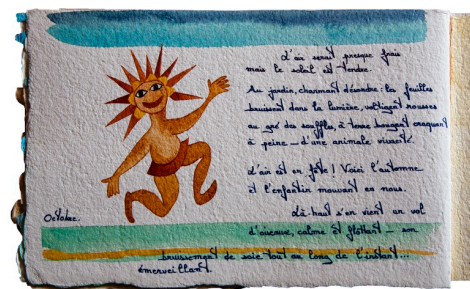 L'air serait presque frais
mais le soleil est tendre.
Au jardin, charmant désordre : les feuilles
bruissent dans la lumière, voltigent rousses
au gré des souffles, à terre bougent craquant
à peine _ d'une animale vivacité.
L'air est en fête ! Voici l'automne
et l'enfantin mouvant en nous.
Là-haut s'en vient un vol
d'oiseaux, calme et flottant _ son
bruissement de soie tout au long de l'instant...
émerveillant.
Octobre.